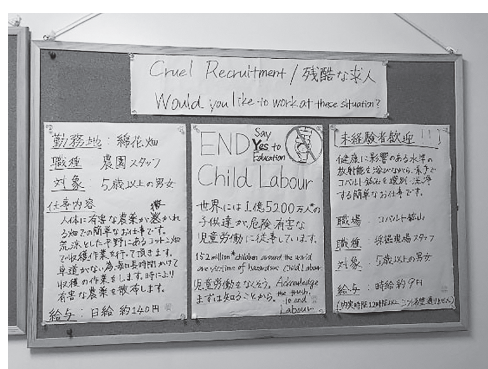 Cruel Recruitment / 残酷な求人
Would you like to work at these situation?
勤務地：綿花畑
職種 農園スタッフ
対象 5歳以上の男女
仕事内容
人体に有害な農薬が撒かれ
る畑での簡単なお仕事です。
荒涼とした平野にあるコットン畑
で収穫作業を行って頂きます。
車道がない為毎日長時間かけて
収穫の作業をします。時により
有害な農薬を散布します。
給与：日給 約140円
END
Say
Yes to
Education
Child Labour
世界には1億5200万人の
子供達が危険 有害な
児童労働に従事しています。
152 million children around the world
are victims of hazardous Child Labour
児童労働をなくそう。Acknowledge
まずは知ることから。the truth
to end
Labour.
未経験者歓迎!!!
健康に影響のある水準の
放射能を浴びながら、素手で
コバルト鉱石を選別・洗浄
する簡単なお仕事です。
職場 コバルト鉱山
職種 採掘現場スタッフ
対象 5歳以上の男女
給与：時給 約9円